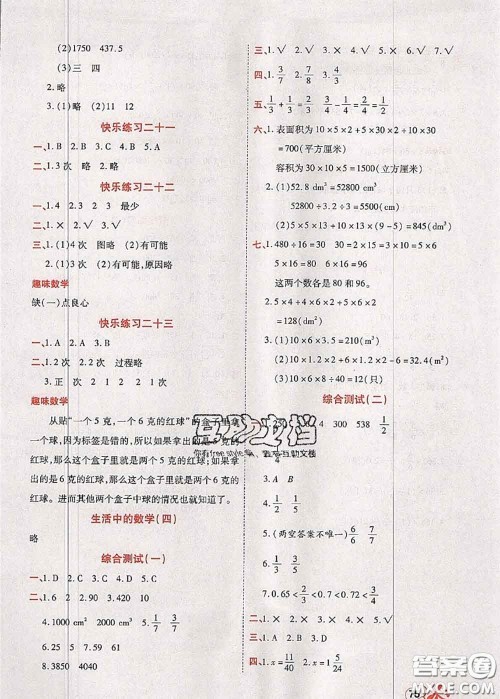 (2)1750　437.5
(3)三　四
2.略
3.(1)略　(2)11　12
快乐练习二十一
一、1.B　2.B　3.C　4.B　5.A
二、1.3次　略　2.略
快乐练习二十二
一、1.4　2.3　2　3　最少
二、1.×　2.√　3.√
三、1.(1)4次　图略　(2)有可能
2.(1)有可能　(2)有可能,原因略
趣味数学
缺(一)点良心
快乐练习二十三
一、1.2次　2.2次　过程略
3.正　次　2　4.2　2
趣味数学
从贴“一个5克,一个6克的红球”的盒子里拿
一个,因为标签是错的,所以如果拿出的是5克
红球,那么这个盒子里就是两个5克的红球;如
果拿出的是6克红球,那么这个盒子里就是两个6克的红
球。进而其他两个盒子中球的情况也就知道了。
生活中的数学(四)
略
综合测试(一)
一、1.B　2.D　3.C　4.D　5.A
二、1.6　2.　2.90　3.10　420
4.1000 cm²　2000 cm³　5. 1/7　3/7
6.25　5　7.59　6.15
8.3850　4040
三、1.√　2.√　3.×　4.×　5.√　6.×　7.√
四、1. 3/7　2. 8/7　3. 4/3
五、1/5+1/30=2/15　3/4-1/8=5/8
六、1.表面积为10×5×2+5×30×2+30×10×2
=700(平方厘米)
容积为30×10×5=1500(立方厘米)
2.(1)52.8 dm³=52800 cm³
52800÷3.2÷3=5500(cm)
(2)(5×5+5×9÷2)×9=845(dm²)
七、1.480÷16=30　30=2×3×5　16×5　16×6
这两个数各是80和96。
2.5×4+6×4×2+5×6×2
=128(dm²)
3.(1)10×6×3.5=210(m²)
(2)10×6×2×10=1200(只)
综合测试(二)
4　300　538　1/2
3.1　4.A　B
5.(两空答案不唯一) 1/6　6/7
6. 1/3　3/5
7.0.65<2/3<0.7<3/4
二、1.√　2.√　3.×　4.√
三、1.D　2.C　3.A　4.B　5.C
四、1. 1/3　5/24　1　1